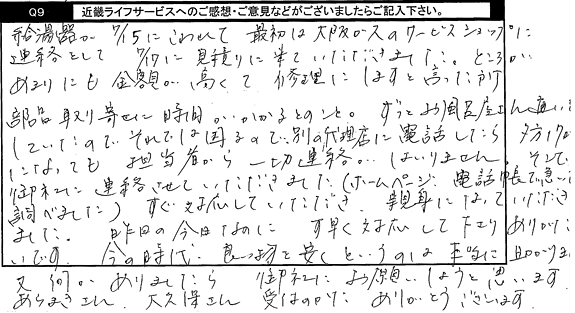 Q9 近畿ライフサービスへのご感想・ご意見などがございましたらご記入下さい。
給湯器が 7/15にこわれて 最初は大阪ガスのサービスショップに
連絡をして 7/17に見積りに来ていただきました。ところが
あまりにも金額が高くて 修理にはすると言ったが
部品取り寄せに時間がかかるとのこと。ずっとお風呂屋さん通い
していたので それでは困るので、別の代理店に電話したら 夕方
になっても 担当者から一切連絡がはいりません。そこで
御社に連絡させていただきました(ホームページ 電話帳で急いで
調べました) すぐ対応していただき 親身になっていただき
ました。昨日の今日なのに 素早く対応して下さり ありがた
いです。今の時代 良い物を安くというのは本当に助かりま
又 何かありましたら 御社にお願いしようと思います
さん、大久保さん 受付の方に ありがとうございます